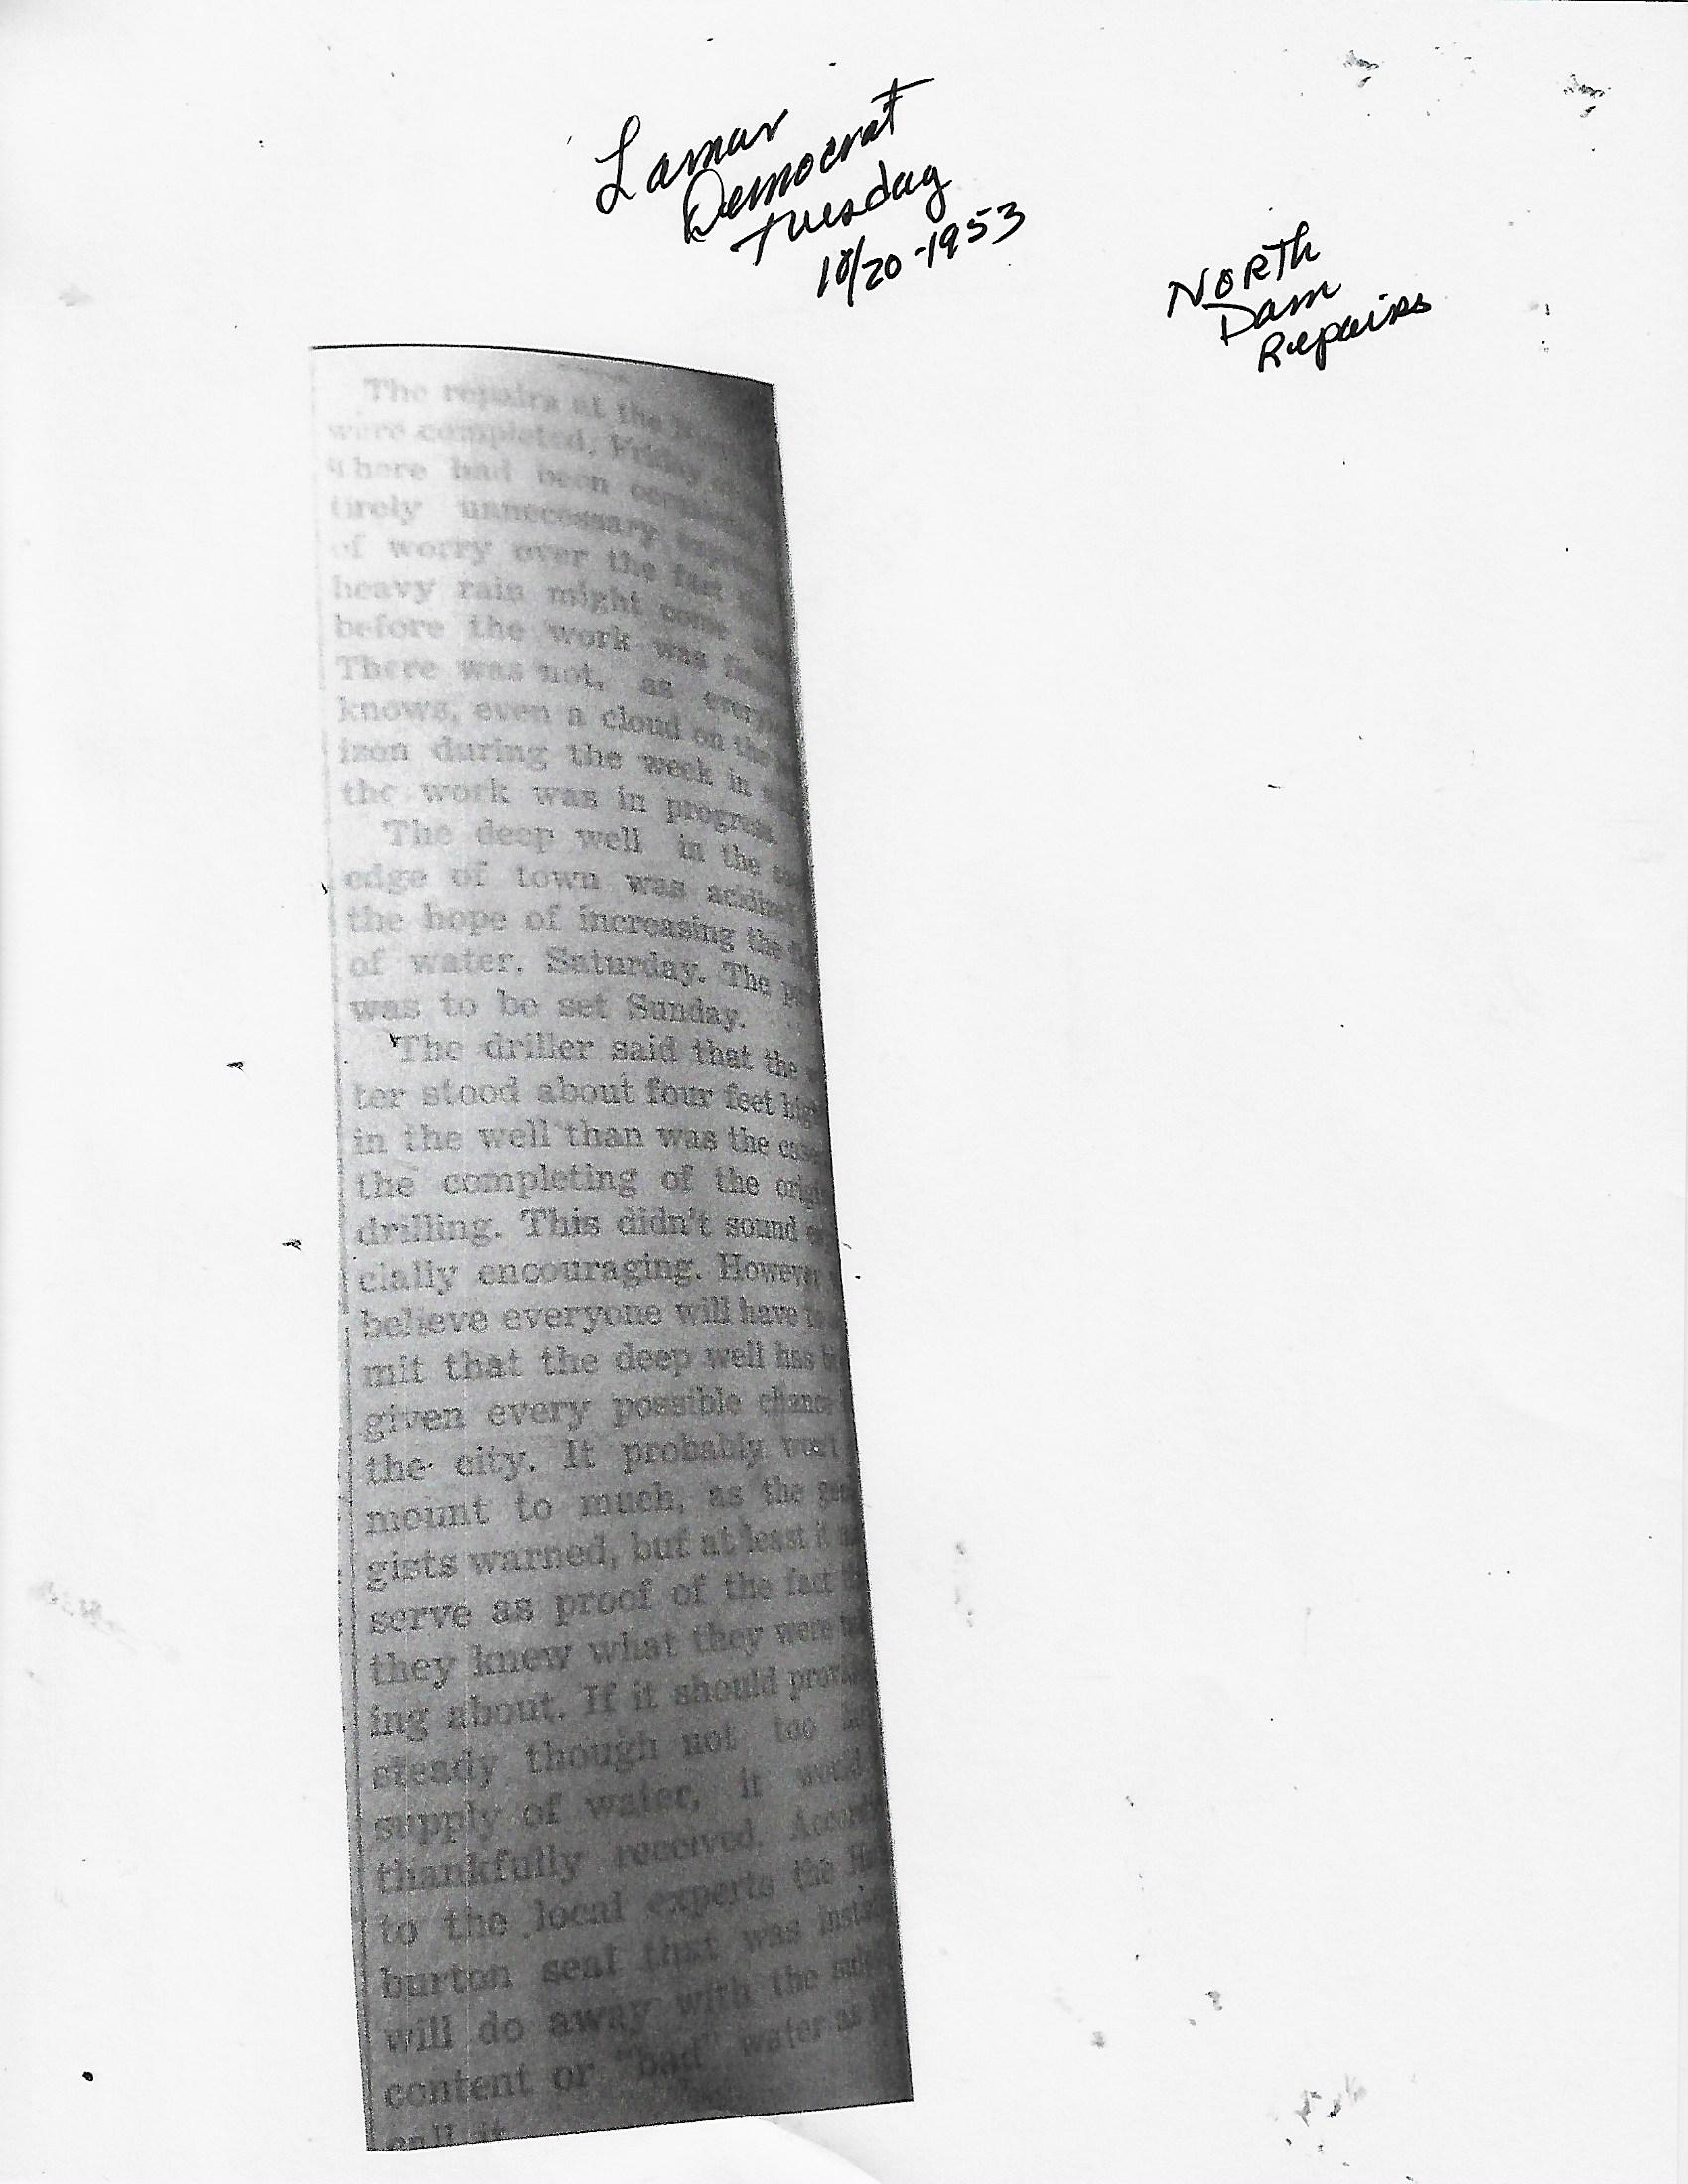 Lamar
Democrat
Tuesday
10/20-1953
North
Dam
Repairs
The repairs at the
were completed, Friday
There had been
tirely unnecessary
of worry over the fact
heavy rain might come
before the work was
There was not, as
knows, even a cloud on the
izon during the week in
the work was in progress.
The deep well in the
edge of town was
the hope of increasing the
of water, Saturday. The
was to be set Sunday.
The driller said that the
ter stood about four feet
in the well than was the
the completing of the
drilling. This didn't sound
cially encouraging. However
believe everyone will have
mit that the deep well has
given every possible
the city. It probably
mount to much, as the
gists warned, but at least it
serve as proof of the fact
they knew what they were
ing about. If it should
steady though not too
supply of water, it would
thankfully received.
to the local experts the
burton seal that was
will do away with the
content or "bad" water as
call it